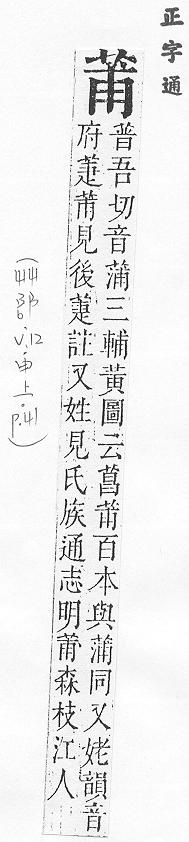 正字通
莆
普吾切音蒲三輔黃圖云菖莆百本與蒲同又姥韻音
府萐莆見後萐註又姓見氏族通志明莆森枝江人
(艸部 v.12 申上. p.41)